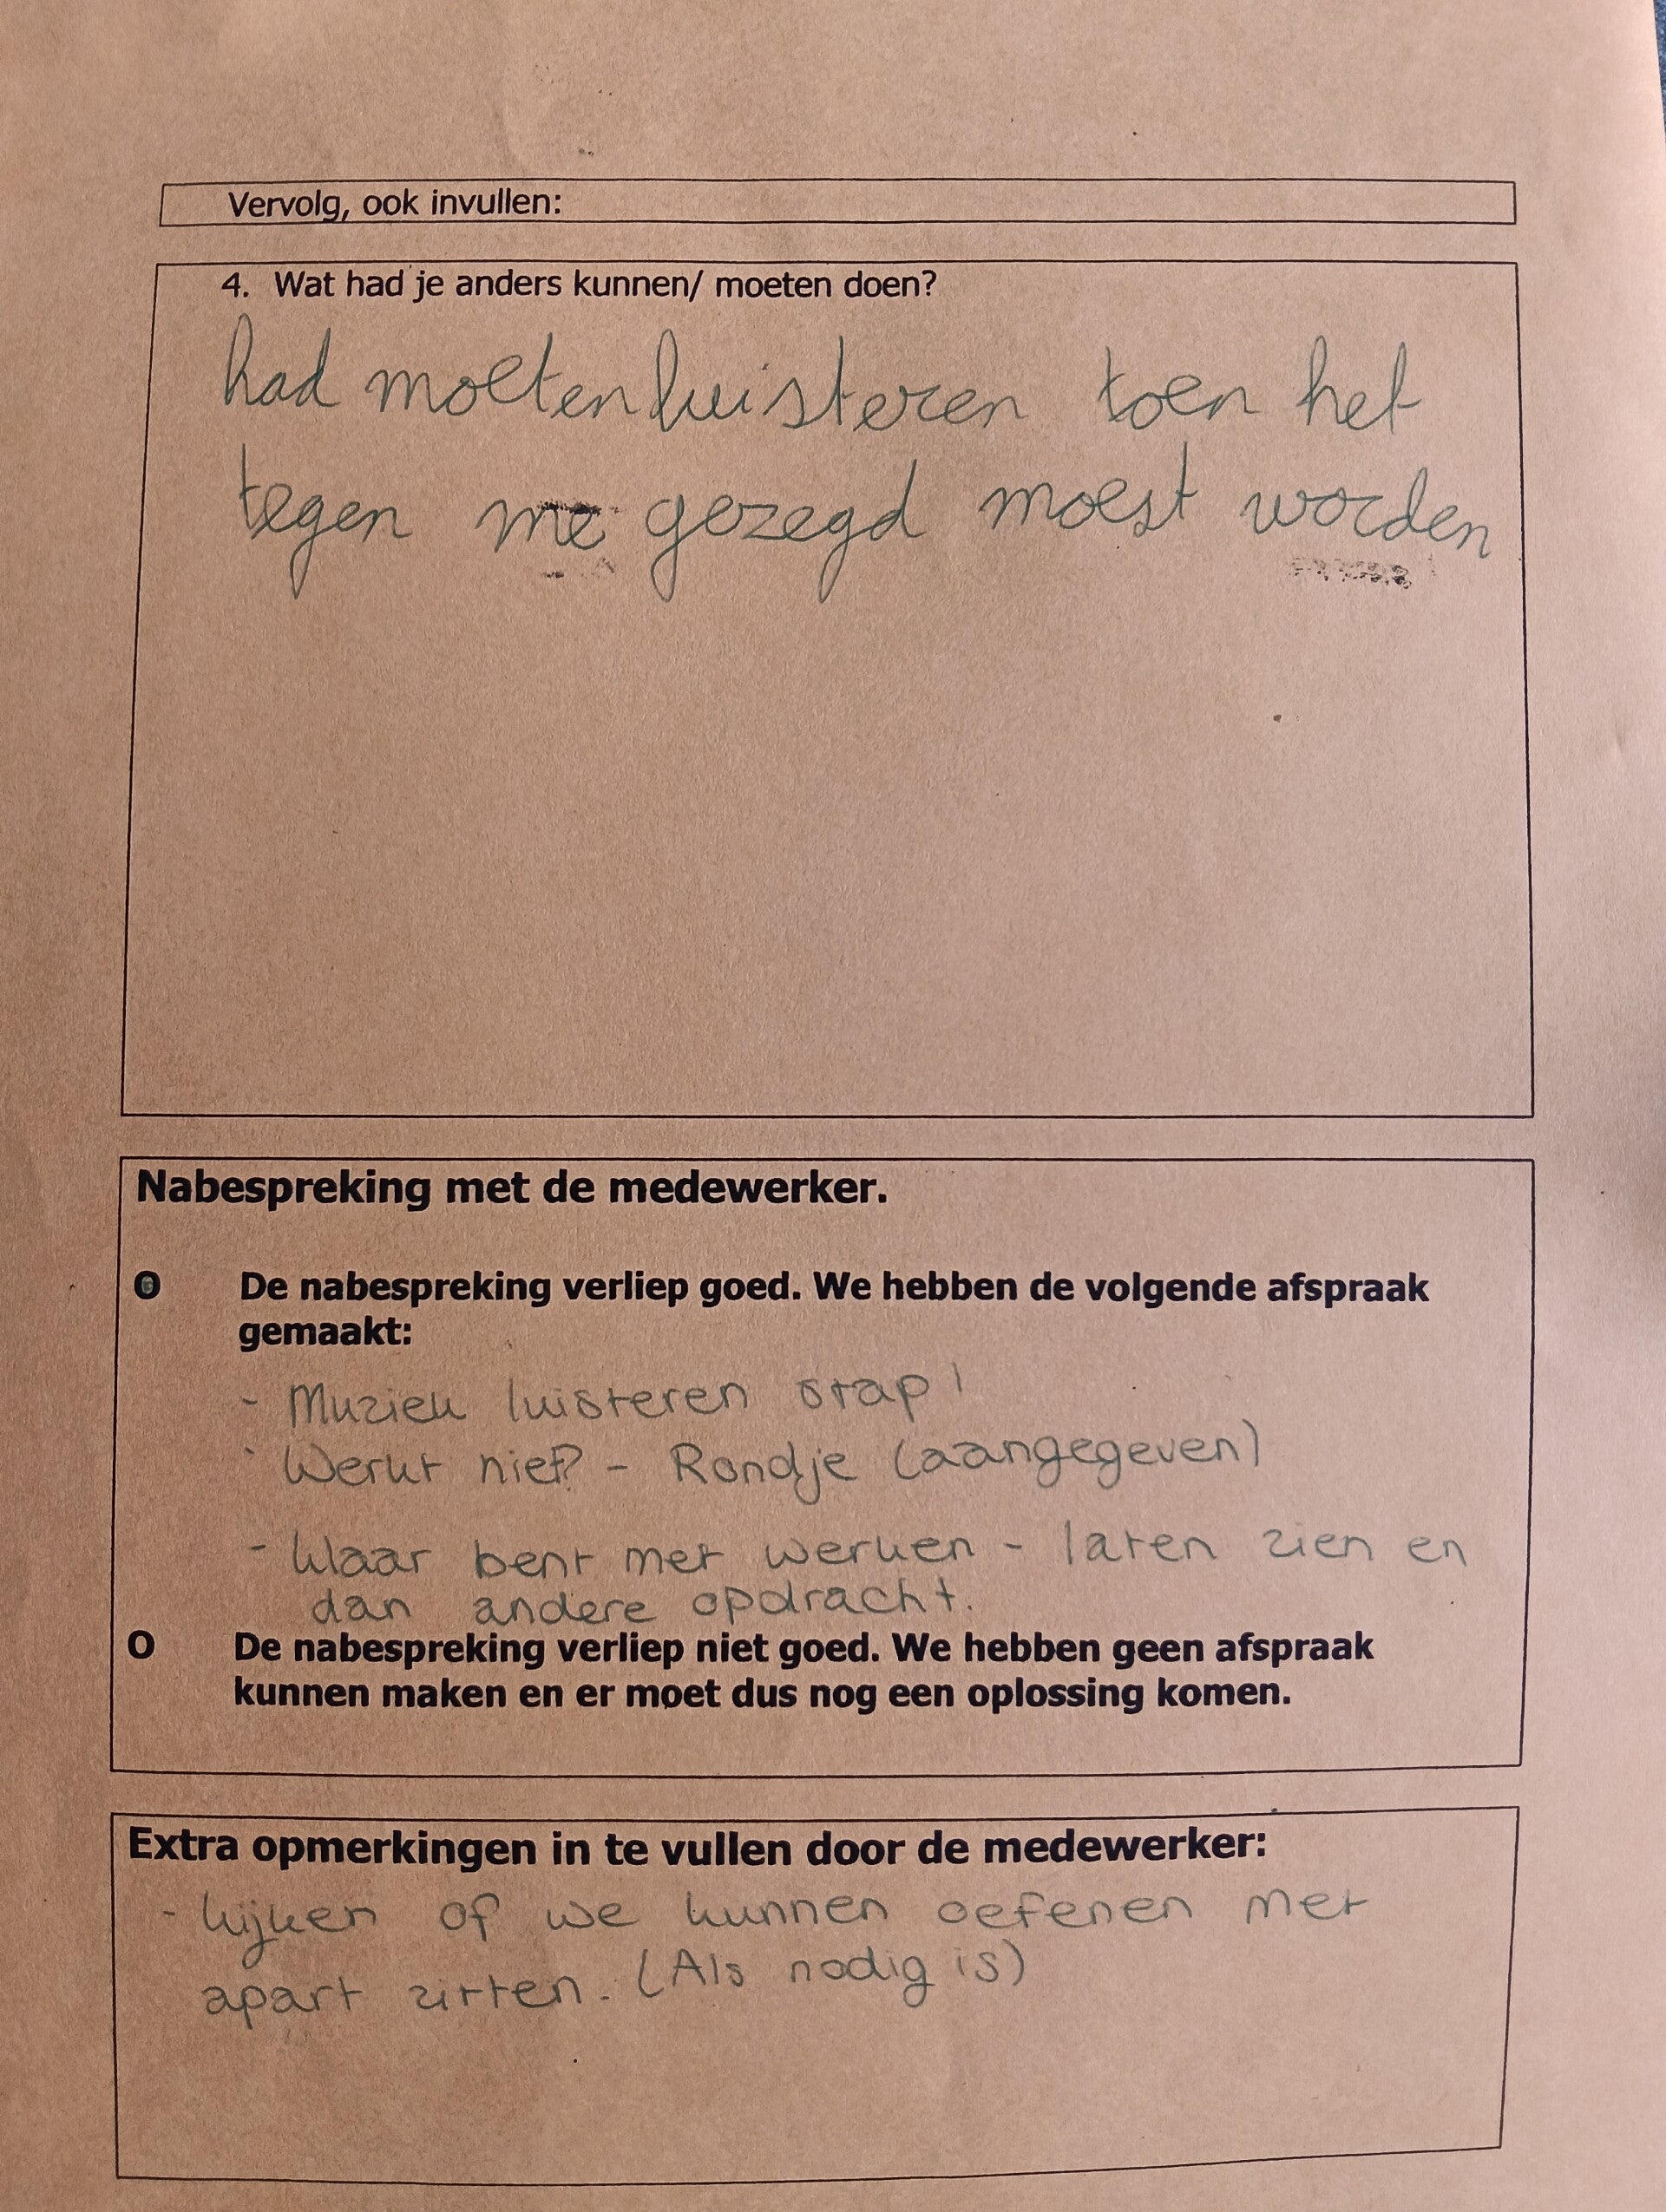 Vervolg, ook invullen:
4. Wat had je anders kunnen/ moeten doen?
had moeten luisteren toen het
tegen me gezegd moest worden
Nabespreking met de medewerker.
O De nabespreking verliep goed. We hebben de volgende afspraak
gemaakt:
- Muziek luisteren stap 1
- Werkt niet? - Rondje (aangegeven)
- klaar bent met werken - laten zien en
dan andere opdracht.
O De nabespreking verliep niet goed. We hebben geen afspraak
kunnen maken en er moet dus nog een oplossing komen.
Extra opmerkingen in te vullen door de medewerker:
- kijken of we kunnen oefenen met
apart zitten. (Als nodig is)